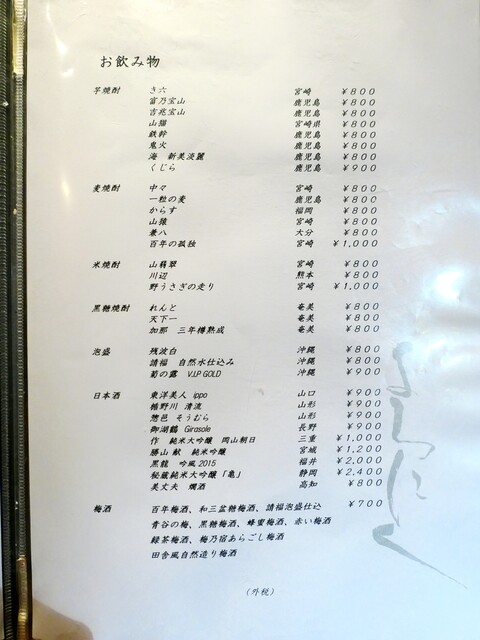 お飲み物
芋焼酎 き六 宮崎 ¥800
富乃宝山 鹿児島 ¥800
吉兆宝山 鹿児島 ¥800
山猫 宮崎県 ¥800
鉄幹 鹿児島 ¥800
鬼火 鹿児島 ¥800
海 新美淡麗 鹿児島 ¥800
くじら 鹿児島 ¥900
麦焼酎 中々 宮崎 ¥800
一粒の麦 鹿児島 ¥800
からす 福岡 ¥800
山猿 宮崎 ¥800
兼八 大分 ¥800
百年の孤独 宮崎 ¥1,000
米焼酎 山翡翠 宮崎 ¥800
川辺 熊本 ¥800
野うさぎの走り 宮崎 ¥1,000
黒糖焼酎 れんと 奄美 ¥800
天下一 奄美 ¥800
加那 三年樽熟成 奄美 ¥800
泡盛 残波白 沖縄 ¥800
請福 自然水仕込み 沖縄 ¥800
菊の露 V.I.P GOLD 沖縄 ¥900
日本酒 東洋美人 ippo 山口 ¥900
楯野川 清流 山形 ¥900
惣邑 そうむら 山形 ¥900
御湖鶴 Girasole 長野 ¥900
作 純米大吟醸 岡山朝日 三重 ¥1,000
勝山 献 純米吟醸 宮城 ¥1,200
黒龍 吟風2015 福井 ¥2,000
秘蔵純米大吟醸「亀」 静岡 ¥2,400
美丈夫 燗酒 高知 ¥800
梅酒 百年梅酒、和三盆糖梅酒、請福泡盛仕込 ¥700
青谷の梅、黒糖梅酒、蜂蜜梅酒、赤い梅酒
緑茶梅酒、梅乃宿あらごし梅酒
田舎風自然造り梅酒
(外税)